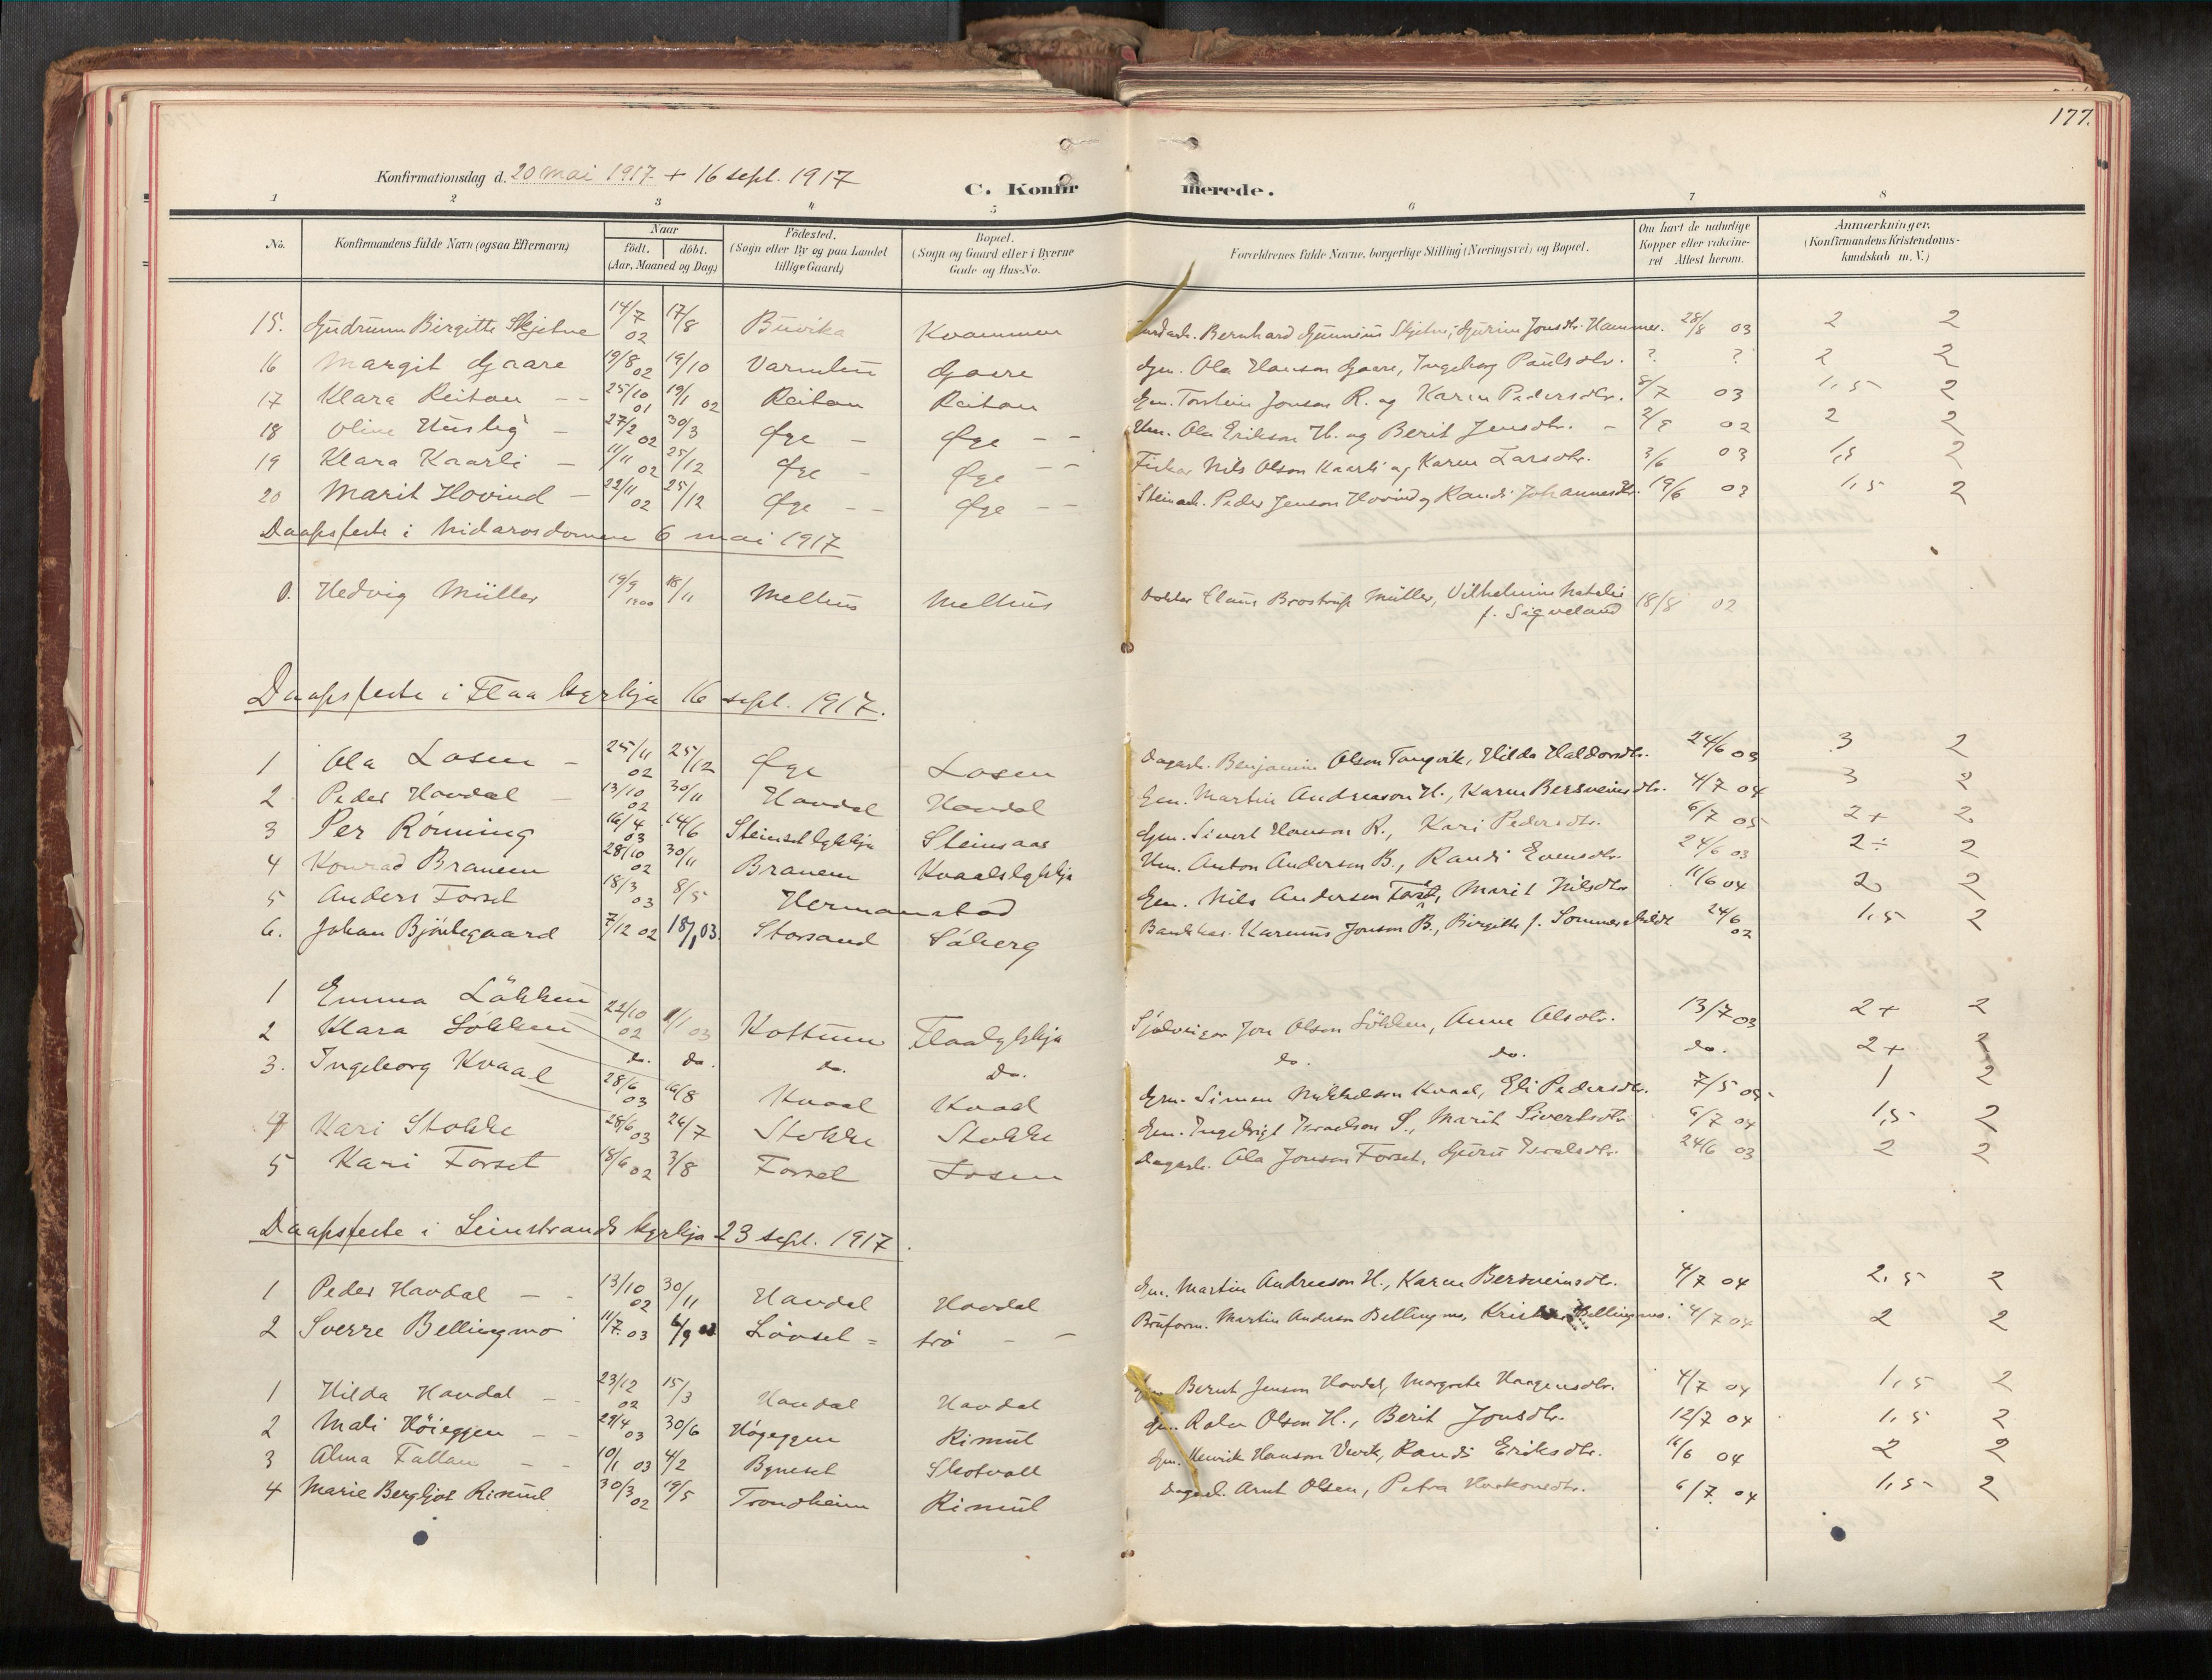 177.
Konfirmationsdag d. 20 mai 1917 + 16 sept. 1917
C. Konfirmerede.
1 2 3 4 5 6 7 8
No. Konfirmandens fulde Navn (ogsaa Efternavn) Naar født. døbt. (Aar, Maaned og Dag) Fødested. (Sogn eller By og paa Landet tillige Gaard) Bopæl. (Sogn og Gaard eller i Byerne Gade og Hus-No. Forældrenes fulde Navne, borgerlige Stilling (Næringsvei) og Bopæl. Om havt de naturlige Kopper eller vakcineret Attest herom. Anmærkninger. (Konfirmandens Kristendomskundskab m. V.)
15. Gudrun Birgitte Skjetne 14/7 02 17/8 Buvika Kvammen Bernhard Skjetne, Guruine Jonsdtr. Hammer. 28/8 03 2 2
16 Margit Gaare 19/8 02 19/10 Gaare Gm. Ola Hanson Gaare, Ingeborg Paulsdtr. ? ? 2 2
17 Klara Reitan - - 25/10 01 19/1 02 Reitan Reitan Gm. Torstein Jonson R. og Karen Pedersdtr. 8/7 03 1,5 2
18 Oline Husby - 27/2 02 30/3 Øye - Øye - - Um. Ola Erikson H. og Berit Jensdtr. - 2/8 02 2 2
19 Klara Kaarli - 11/11 02 25/12 Øye - Øye - - Fisker Nils Olson Kaarli og Karen Larsdtr. 3/6 03 1,5 2
20 Marit Hovind - 22/11 02 25/12 Øye - - Øye - - Steinarb. Peder Jenson Hovind og Randi Johannesdtr. 19/6 03 1,5 2
Daapsfeste i Nidarosdomen 6 mai 1917
1. Hedvig Müller 19/9 1900 18/11 Melhus Melhus Doktor Claus Brostrup Müller, Vilhelmine Natalie f. Sigveland 18/8 02
Daapsfeste i Flaa kyrkja 16 sept. 1917.
1 Ola Losen - 25/11 02 25/12 Øye Losen Dagarb. Benjamin Olson Tangvik, Hilda Haldorsdtr. 24/6 03 3 2
2 Peder Havdal - 13/10 02 30/11 Havdal Havdal Gm. Martin Andreason H., Karen Bersveinsdtr. 4/7 04 3 2
3 Per Rönning 16/4 03 14/6 Steinsaas Gm. Sivert Hanson R., Kari Pedersdtr. 6/7 05 2+ 2
4 Konrad Branem 28/10 02 30/11 Branem Kvaalslykkja Um. Anton Anderson B., Randi Evensdtr. 24/6 03 2÷ 2
5 Anders Forset 18/3 03 8/5 Hermanstad Gm. Nils Anderson Forset, Marit Nilsdtr 11/6 04 2 2
6. Johan Björkegaard 7/12 02 18/1 03. Storsand Söberg Bankkas. Karenus Jonson B., Birgitte f. Sommerschildt 24/6 02 1,5 2
1 Emma Lökken 22/10 02 1/1 03 Kottum Flaalykkja Sjølveigar Jon Olson Lökken, Anne Olsdtr. 13/7 03 2+ 2
2 Klara Lökken do. do. do. do. do. do. do. 2+ 2
3. Ingeborg Kvaal 28/6 03 16/8 Kvaal Kvaal Gm. Simen Mikkelson Kvaal, Eli Pedersdtr. 7/5 05 1 2
4 Kari Stokke 28/6 03 26/7 Stokke Stokke Gm. Ingebrigt Israelson S., Marit Sivertsdtr 6/7 04 1,5 2
5 Kari Forset 18/6 02 3/8 Forset Losen Dagarb. Ola Jonson Forset, Guru Israelsdtr. 24/6 03 2 2
Daapsfeste i Leinstrands kyrkja 23 sept. 1917.
1 Peder Havdal - - 13/10 02 30/11 Havdal Havdal Gm. Martin Andreeson H., Karen Bersveinsdtr. 4/7 04 2,5 2
2 Sverre Bellingmo 11/7 03 6/9 Lövset = trö - - Martin Anderson Bellingmo, Bellingmo. 4/7 04 2 2
1 Hilda Havdal - - 23/12 02 15/3 Havdal Havdal Gm. Bernt Jenson Havdal, Margrete Haagensdtr. 4/7 04 1,5 2
2 Mali Höieggen - - 29/4 03 30/6 Högeggen Rimul Gm. Olson H., Berit Jonsdtr. 12/7 04 1,5 2
3 Alma Fallan - - 10/1 03 4/2 Byneset Skotvoll Gm. Henrik Hanson Randi Eriksdtr. 11/6 04 2 2
4 Marie Bergljot Rimul 30/3 02 19/5 Trondheim Rimul Dagarb. Arnt Olsen, Petra Haakonsdtr. 6/7 04 1,5 2